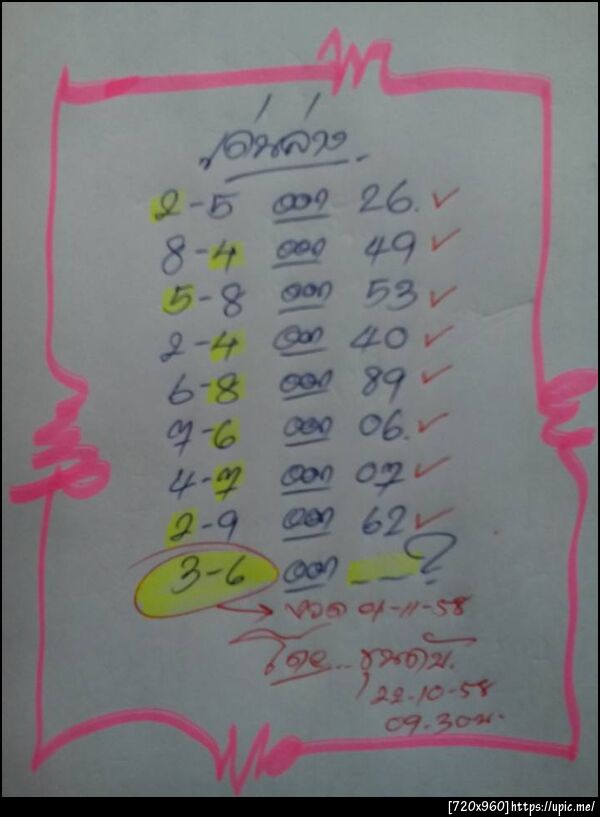 เด่นล่าง
2-5 ออก 26. ✓
8-4 ออก 49 ✓
5-8 ออก 53 ✓
2-4 ออก 40 ✓
6-8 ออก 89 ✓
7-6 ออก 06. ✓
4-7 ออก 07 ✓
2-9 ออก 62 ✓
3-6 ออก _ _ ?
→ งวด 01-11-58
โดย.. ขุนดับ.
22-10-58
09.30น.
[720x960]https://upic.me/